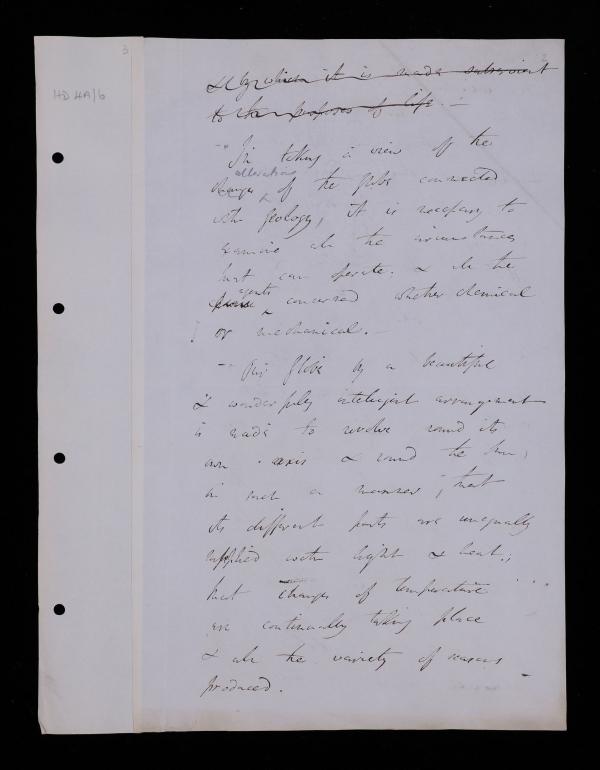 3
HD 4A/6
& by which it is made subservient
to the purposes of life. —
— In taking a view of the
alterations
changes of the globe connected
with geology, it is necessary to
examine all the circumstances
that can operate. & all the
agents
concerned whether chemical
or mechanical. —
— Our globe by a beautiful
& wonderfully intelligent arrangement
is made to revolve round its
own axis & round the Sun,
in such a manner, that
its different parts are unequally
supplied with light & heat.;
that changes of temperature
are continually taking place
& all the variety of seasons
produced.